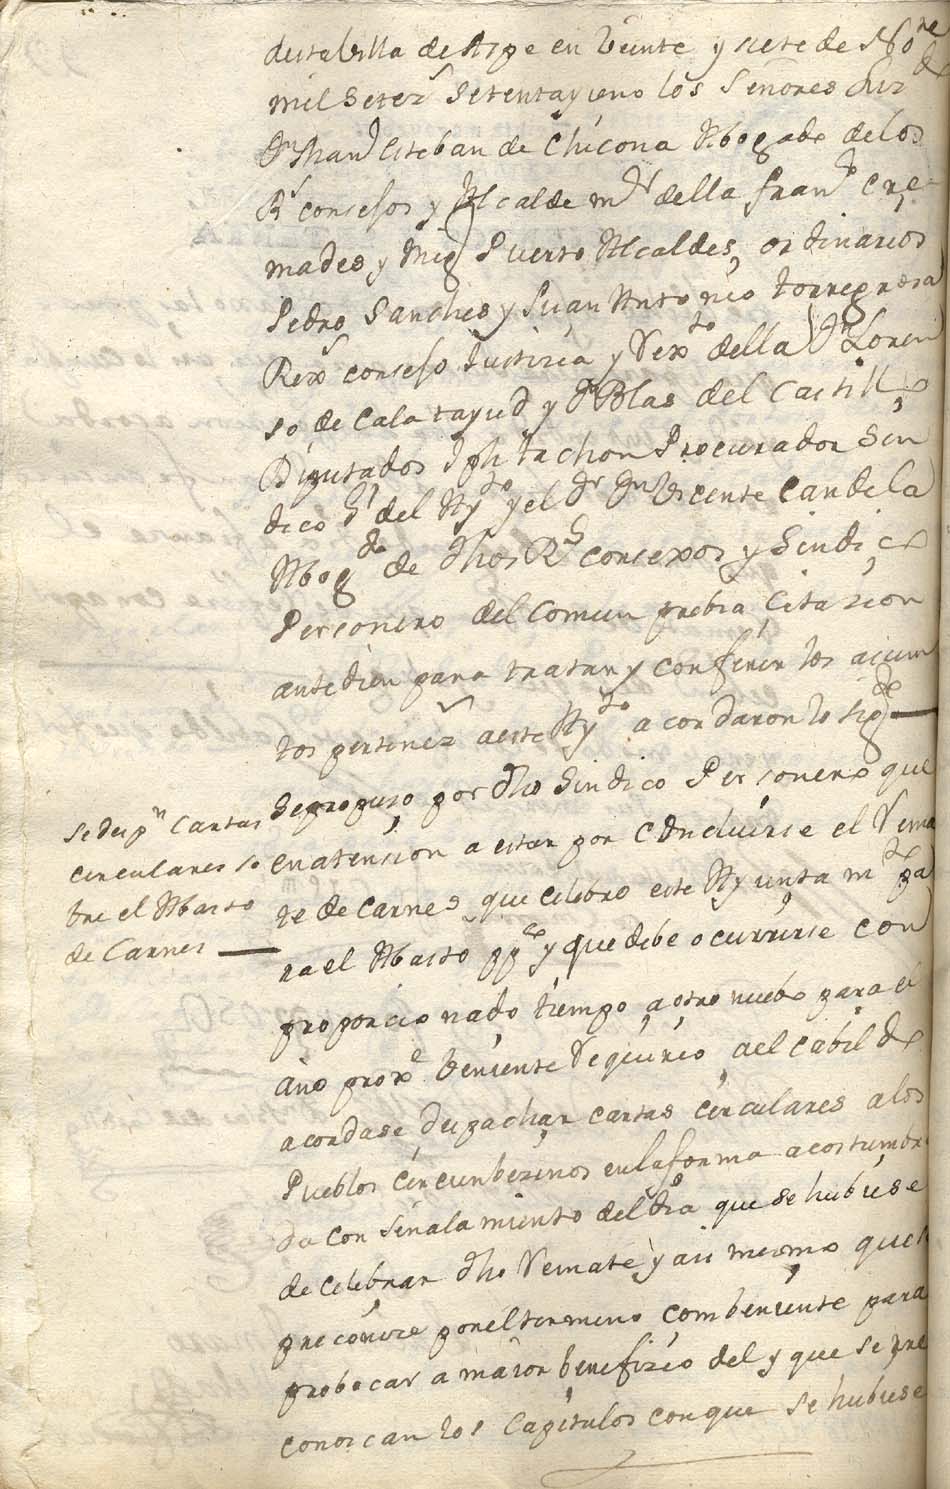 desta Villa de Aspe en Veinte y siete de Nov.re de
mil setez.s setenta y uno los Señores Liz.do
D.n Man.l Esteban de Chicona Abogado de los
R.s consejos y Alcalde m.or della Fran.co Cre-
mades y Mig.l Puerto Alcaldes, ordinarios
Pedro Sanches y Juan Antonio torregrosa
Rex.s consejo Justizia y Rex.to della D.n Loren
so de Calatayud y D.n Blas del Castillo
Diputados Jph tachon Procurador Sin
dico G.l del Ay.to y el D.r D.n Vicente Candela
Abog.do de dhos R.s consexos y Sindico
Personero del Comun prebia Citazion
ante diem para tratar y conferir los asum
tos pertenez.s a este Ay.to acordaron lo sig.te
Se propuso por dho Sindico Personero que
en atension a estar por Concluirse el Rema
te de Carnes que Celebro este Ayuntam.to pa
ra el Abasto pp.co y que debe ocurrirse con
proporcionado tiempo a otro nuebo para el
año prox.o beniente Requirio, a el Cabildo
acordase despachar cartas circulares a los
Pueblos Circunbezinos en la forma acostumbra
da con Señalamiento del dia que se hubiese
de Celebrar dho Remate y asi mesmo que se
preconize por el termino combeniente para
probocar a maior benefizio del y que se pre
conoscan los Capitulos con que se hubiese
Se desp.n Cartas
circulares so
bre el Abasto
de Carnes